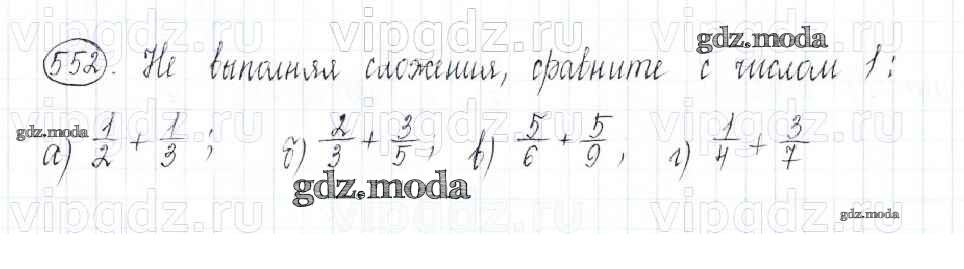 vipgdz.ru vipgdz.ru vipgdz.ru
gdz.moda
552. Не выполняя сложения, сравните с числом 1:
vipgdz.ru vipgdz.ru vipgdz.ru
gdz.moda
а) 1/2 + 1/3; б) 2/3 + 3/5; в) 5/6 + 5/9, г) 1/4 + 3/7
gdz.moda
vipgdz.ru vipgdz.ru vipgdz.ru
gdz.moda